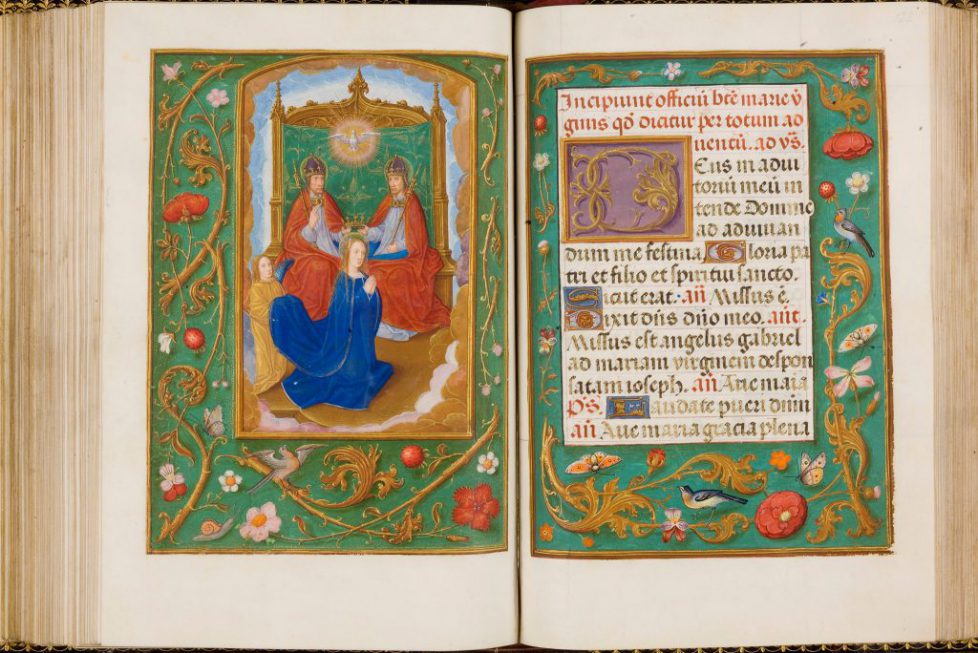 Incipiunt officiū btē marie v̄
ginis qō dicitur per totum ad
uentū. ad vs̄.
Eus in adiu
toriū meū in
tende Domine
ad adiuuan
dum me festina Gloria pa
tri et filio et spiritui sancto.
Sicut erat. an̄ Missus ē.
Dixit dn̄s dn̄o meo. an̄t.
Missus est angelus gabriel
ad mariam virginem despon
satam ioseph. an̄ Aue maia
Ps̄. Laudate pueri dnm
an̄ Aue maria gracia plena